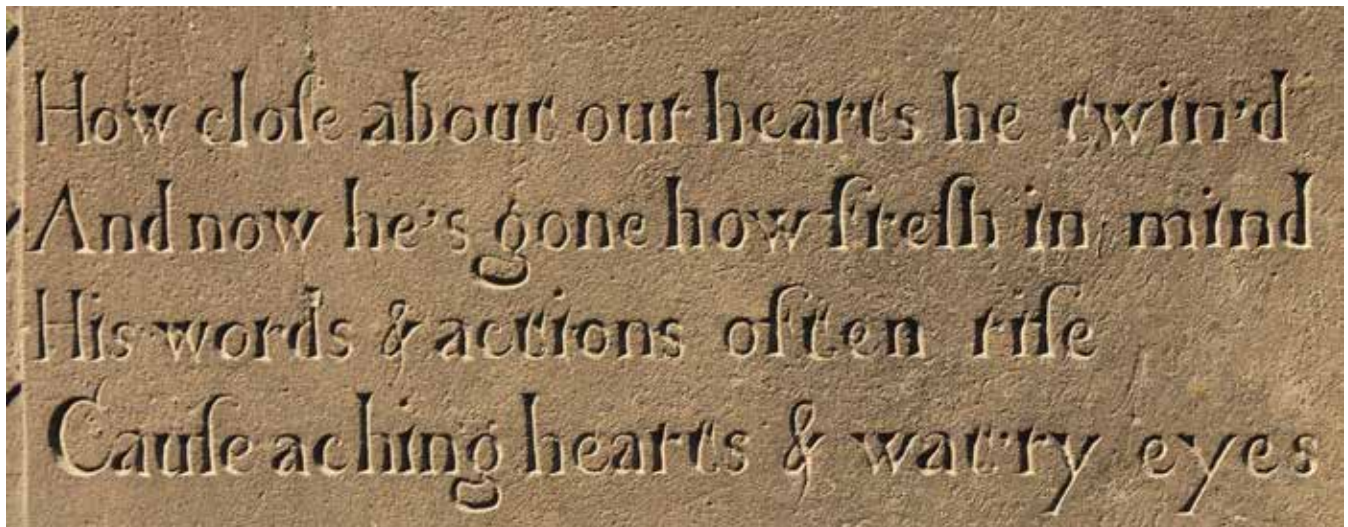 How cloſe about our hearts he twin'd
And now he's gone how freſh in mind
His words & actions often riſe
Cauſe aching hearts & wat'ry eyes